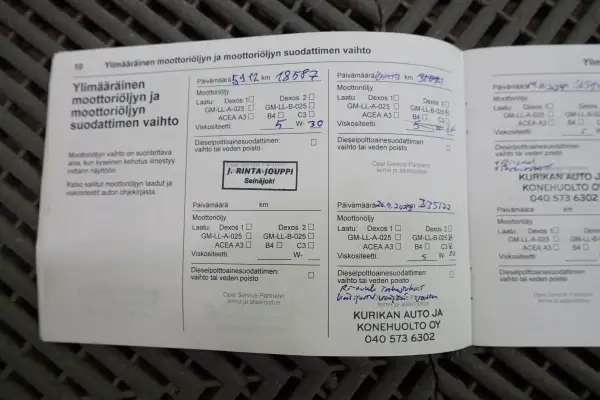 10 Ylimääräinen moottoriöljyn ja moottoriöljyn suodattimen vaihto
Ylimääräinen
moottoriöljyn ja
moottoriöljyn
suodattimen vaihto
Moottoriöljyn vaihto on suoritettava
aina, kun kyseinen kehotus ilmestyy
mittarin näyttöön.
Katso sallitut moottoriöljyn laadut ja
viskositeetit auton ohjekirjasta.
Päivämäärä 5912 km 18587
Moottoriöljy
Laatu: Dexos 1 Dexos 2
GM-LL-A-025 GM-LL-B-025
ACEA A3 B4 C3
Viskositeetti 5 W- 30
Dieselpolttoainesuodattimen:
vaihto tai veden poisto
J. RINTA-JOUPPI
Seinäjoki
Päivämäärä km
Moottoriöljy
Laatu: Dexos 1 Dexos 2
GM-LL-A-025 GM-LL-B-025
ACEA A3 B4 C3
Viskositeetti W-
Dieselpolttoainesuodattimen:
vaihto tai veden poisto
Opel Service-Partnern
leima ja allekirjoitus
Päivämäärä km
Moottoriöljy
Laatu: Dexos 1 Dexos 2
GM-LL-A-025 GM-LL-B-025
ACEA A3 B4 C3
Viskositeetti 5 W-
Dieselpolttoainesuodattimen:
vaihto tai veden poisto
Opel Service-Partnern
leima ja allekirjoitus
Päivämäärä
Moottoriöljy
Laatu: Dexos 1 Dexos 2
GM-LL-A-025 GM-LL-B-025
ACEA A3 B4 C3
Viskositeetti 5 W- 30
Dieselpolttoainesuodattimen:
vaihto tai veden poisto
Opel Service-Partnern
leima ja allekirjoitus
KURIKAN AUTO JA
KONEHUOLTO OY
040 573 6302
Päivämäärä
Moottoriöljy
Laatu: Dexos 1
GM-LL-A-025
ACEA A3
Viskositeetti
Dieselpolttoainesuodattimen:
vaihto tai veden poisto
KURIKAN AUTO J
KONEHUOLTO O
040 573 63
Päivämäärä km
Moottoriöljy
Laatu: Dexos 1
GM-LL-A-025
ACEA A3
Viskositeetti
Dieselpolttoainesuodattimen:
vaihto tai veden poisto